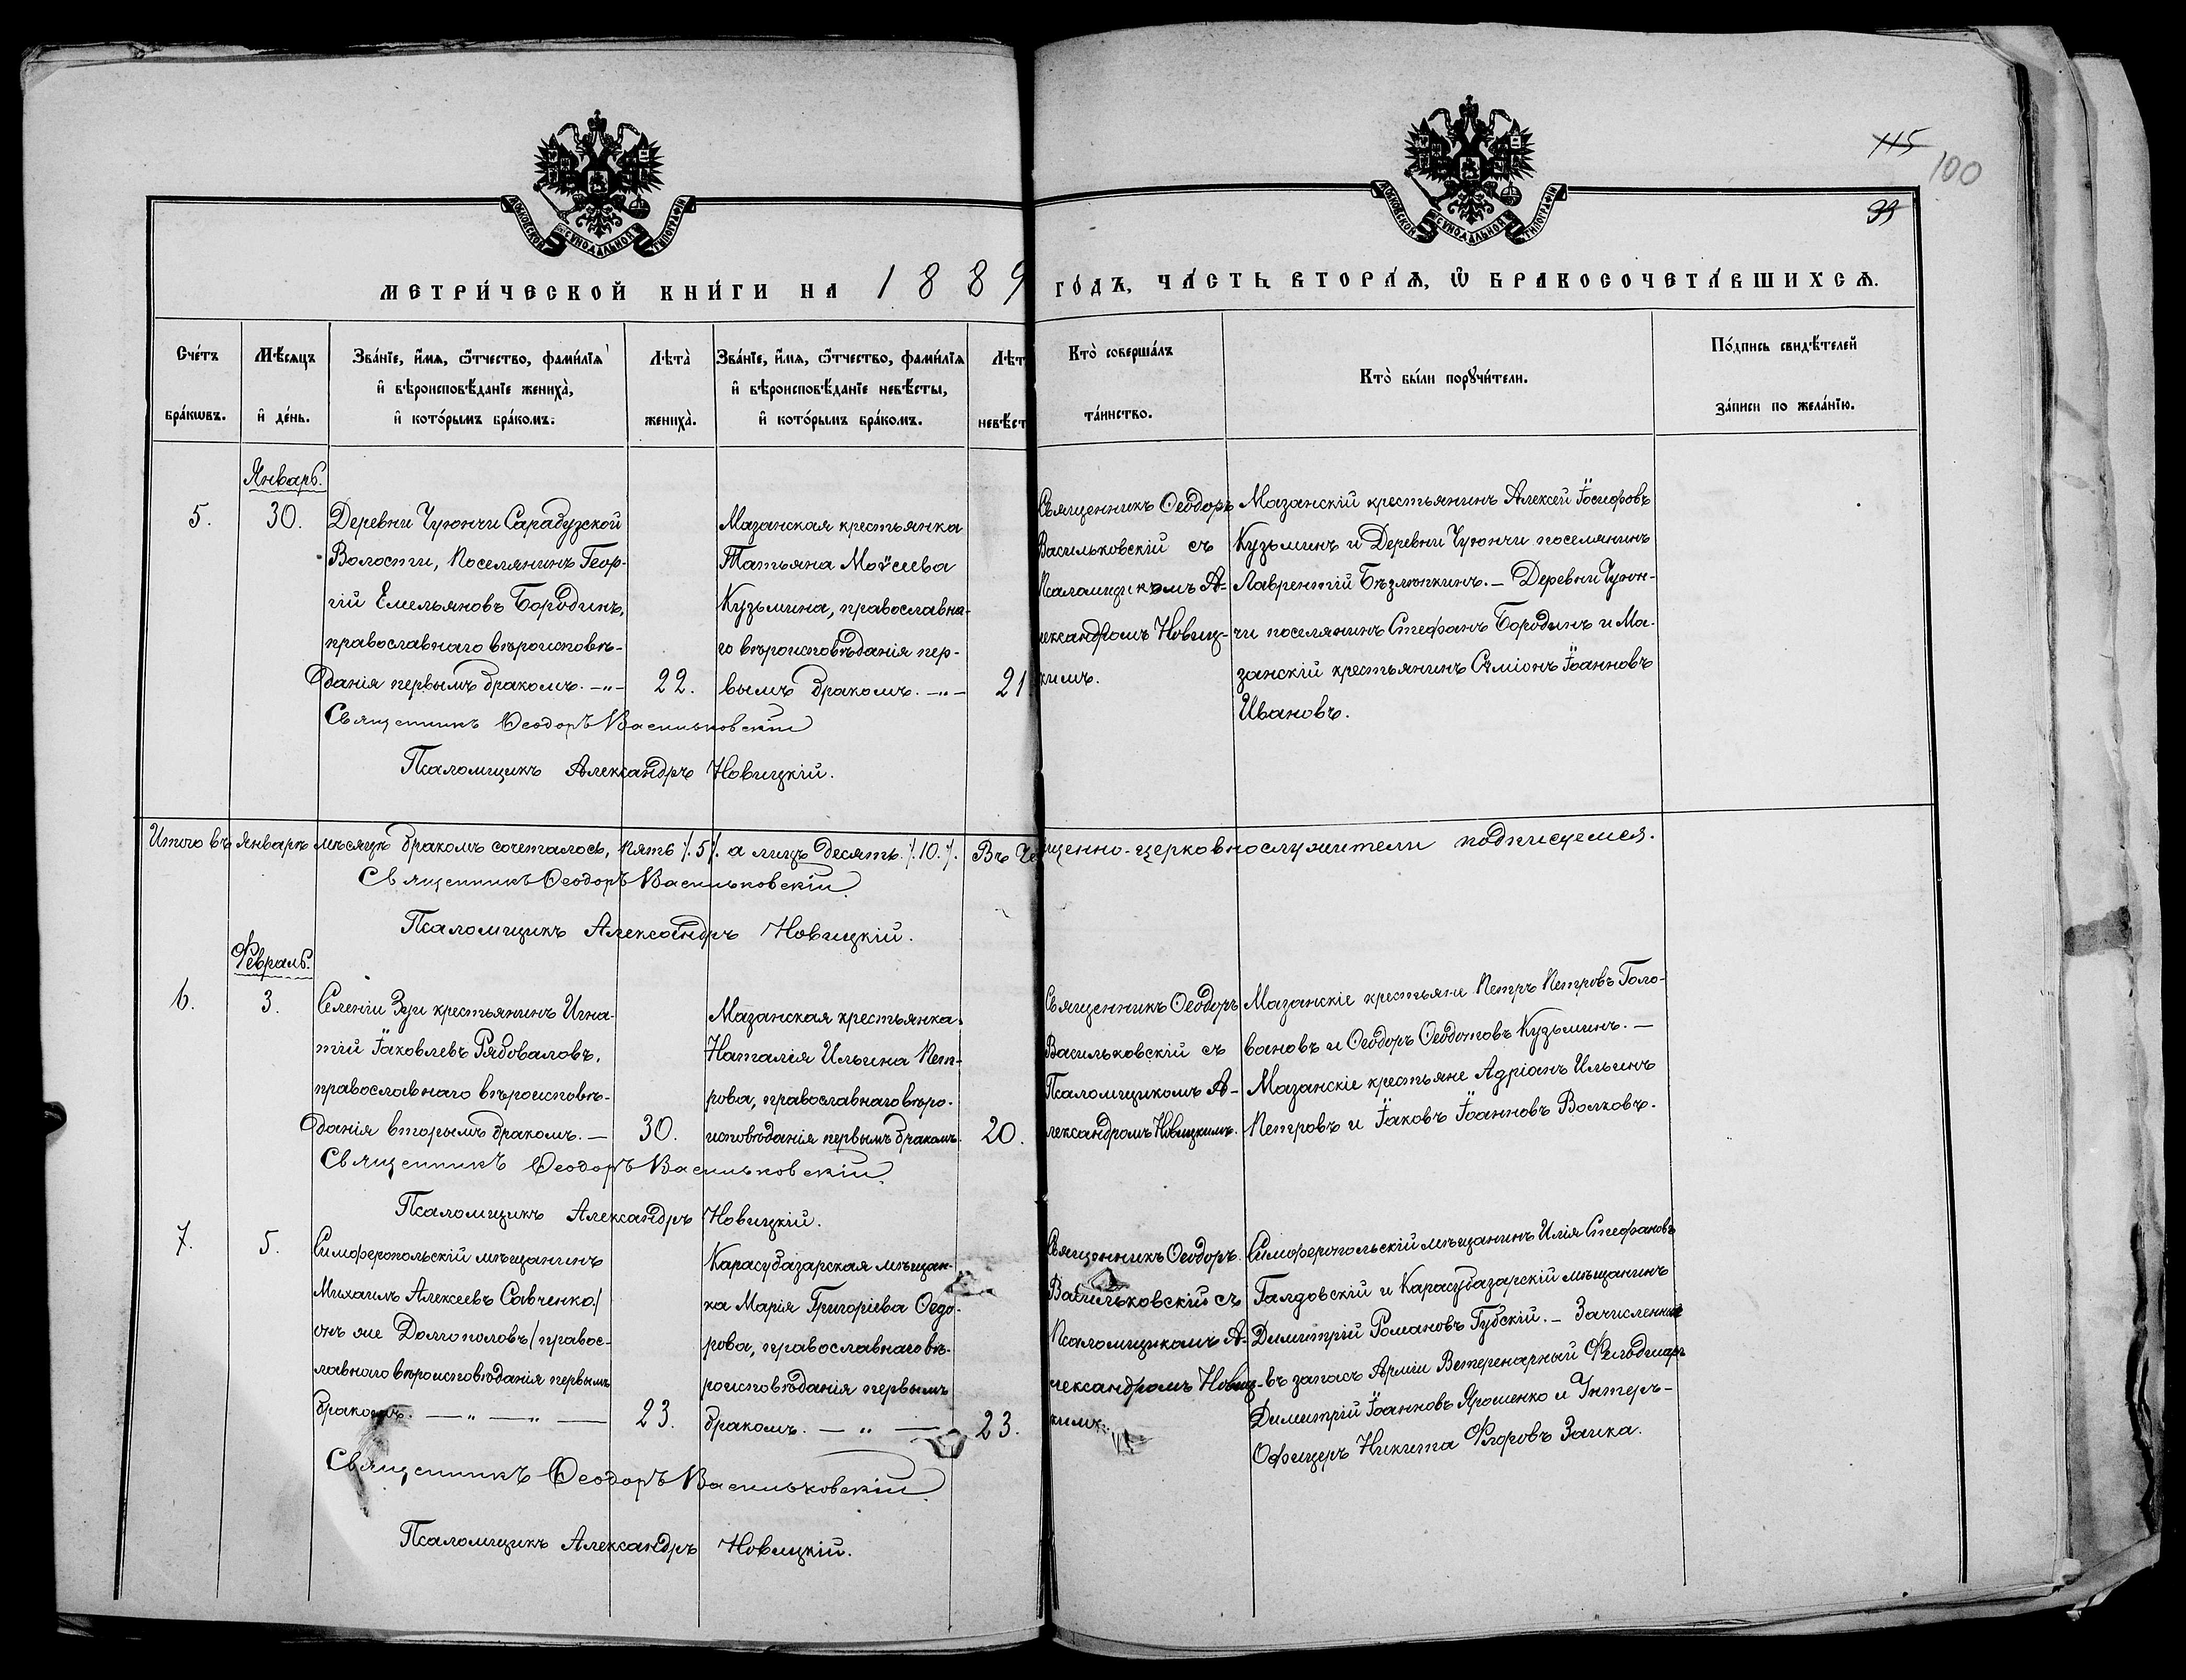 115
100
99
МОСКОВСКОЙ СУНОДАЛЬНОЙ ТИПОГРАФІИ
МОСКОВСКОЙ СУНОДАЛЬНОЙ ТИПОГРАФІИ
МЕТРИ́ЧЕСКОЙ КНИ́ГИ НА 1889 ГО́ДЪ, ЧА́СТЬ ВТОРА́Я, Ѽ БРАКОСОЧЕТА́ВШИХСЯ.
Сче́тъ бра́кѡвъ.
Мѣ́сяцъ и҆ де́нь.
Зва́нїе, и҆́мя, ѻ҆́тчество, фами́лїя
и҆ вѣроисповѣ́данїе жениха̀,
и҆ кото́рымъ бра́комъ.
Лѣта̀ жениха̀.
Зва́нїе, и҆́мя, ѻ҆́тчество, фами́лїя
и҆ вѣроисповѣ́данїе невѣ́сты,
и҆ кото́рымъ бра́комъ.
Лѣт
невѣ́ст
Кто̀ соверша́лъ
та́инство.
Кто̀ бы́ли порꙋчи́тели.
По́дпись свидѣ́телей
за́писи по жела́нїю.
Январь.
5.
30.
Деревни Чуюнчи Сарабузской
Волости, Поселянинъ Геор-
гій Емельяновъ Бородинъ,
православнаго вѣроисповѣ-
данія первымъ бракомъ. —„—
22.
Мазанская крестьянка
Татьяна Моѵсиева
Кузьмина, православна-
го вѣроисповѣданія пер-
вымъ бракомъ. —„—
21
Священникъ Ѳеодоръ
Васильковскій съ
Псаломщикомъ А-
лександромъ Новиц-
кимъ.
Мазанскій крестьянинъ Алексей Іосифовъ
Кузьминъ и Деревни Чуюнчи поселянинъ
Лаврентій Безлюпкинъ. — Деревни Чуюн-
чи поселянинъ Стефанъ Бородинъ и Ма-
занскій крестьянинъ Сѵміонъ Іоанновъ
Ивановъ.
Священникъ Ѳеодоръ Васильковскій
Псаломщикъ Александръ Новицкій.
Итого въ Январѣ мѣсяцѣ бракомъ сочеталось, пять /.5/. а лицъ десять. /.10./. Въ че щенно-церковнослужители подписуемся.
Священникъ Ѳеодоръ Васильковскій
Псаломщикъ Александръ Новицкій.
Февраль.
6.
3.
Селенія Зуи крестьянинъ Игна-
тій Іаковлевъ Рябоваловъ,
православнаго вѣроисповѣ-
данія вторымъ бракомъ. —
30.
Мазанская крестьянка
Наталія Ильина Пет-
рова, православнаго вѣро-
исповѣданія первымъ бракомъ.
20.
Священникъ Ѳеодоръ
Васильковскій съ
Псаломщикомъ А-
лександромъ Новицкимъ.
Мазанскіе крестьяне Петръ Петровъ Голо-
вановъ и Ѳеодоръ Ѳеодотовъ Кузьминъ. —
Мазанскіе крестьяне Адріанъ Ильинъ
Петровъ и Іаковъ Іоанновъ Волковъ.
Священникъ Ѳеодоръ Васильковскій
Псаломщикъ Александръ Новицкій.
7.
5.
Симферопольскій мѣщанинъ
Михаилъ Алексеевъ Савченко /
онъ же Долгополовъ / правос-
лавнаго вѣроисповѣданія первымъ
бракомъ. — „ — „ —
23.
Карасубазарская мѣщан-
ка Марія Григоріева Ѳедо-
рова, православнаго вѣ-
роисповѣданія первымъ
бракомъ. — „ —
23.
Священникъ Ѳеодоръ
Васильковскій съ
Псаломщикомъ А-
лександромъ Новиц-
кимъ.
Симферопольскій мѣщанинъ Илія Стефановъ
Галдовскій и Карасубазарскій мѣщанинъ
Димитрій Романовъ Губскій. — Зачисленные
въ запасъ Арміи Ветеренарный Фельдшаръ
Димитрій Іоанновъ Ярошенко и Унтеръ-
Офицеръ Никита Флоровъ Заика.
Священникъ Ѳеодоръ Васильковскій
Псаломщикъ Александръ Новицкій.